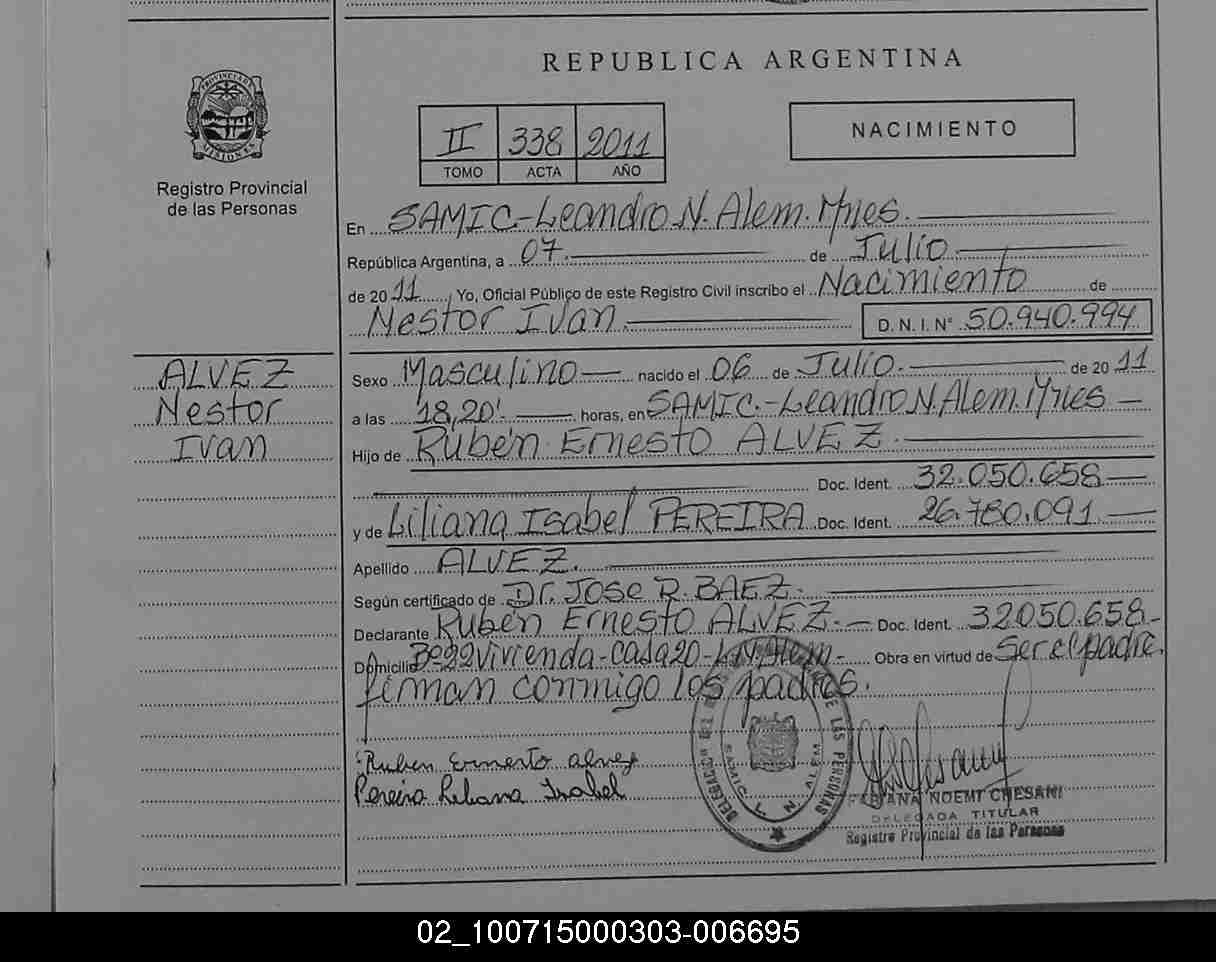 REPUBLICA ARGENTINA
PROVINCIA DE MISIONES
Registro Provincial
de las Personas
II 338 2011
TOMO ACTA AÑO
NACIMIENTO
En SAMIC-Leandro N. Alem. Mnes.
República Argentina, a 07. de Julio
de 2011 Yo, Oficial Público de este Registro Civil inscribo el Nacimiento de
Nestor Ivan. D. N. I. N° 50.940.994
ALVEZ
Nestor
Ivan
Sexo Masculino nacido el 06 de Julio. de 2011
a las 18,20' horas, en SAMIC.-Leandro N. Alem. Mnes
Hijo de Rubén Ernesto ALVEZ.
Doc. Ident. 32.050.658
y de Liliana Isabel PEREIRA Doc. Ident. 26.780.091
Apellido ALVEZ.
Según certificado de Dr. JOSE R. BAEZ.
Declarante Rubén Ernesto ALVEZ. Doc. Ident. 32050.658
Domicilio B° 22 Vivienda-Casa 20-L.N. Alem- Obra en virtud de ser el padre.
firman conmigo los padres.
Ruben Ernesto alvez
Pereira Liliana Isabel
DE LAS PERSONAS
SAMIC L. N. ALEM
FABIANA NOEMI CHESANI
DELEGADA TITULAR
Registro Provincial de las Personas
02_100715000303-006695